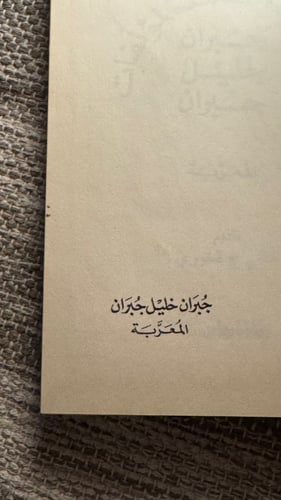 جُبرَان خليْل جُبرَان
المُعَرَّبَة